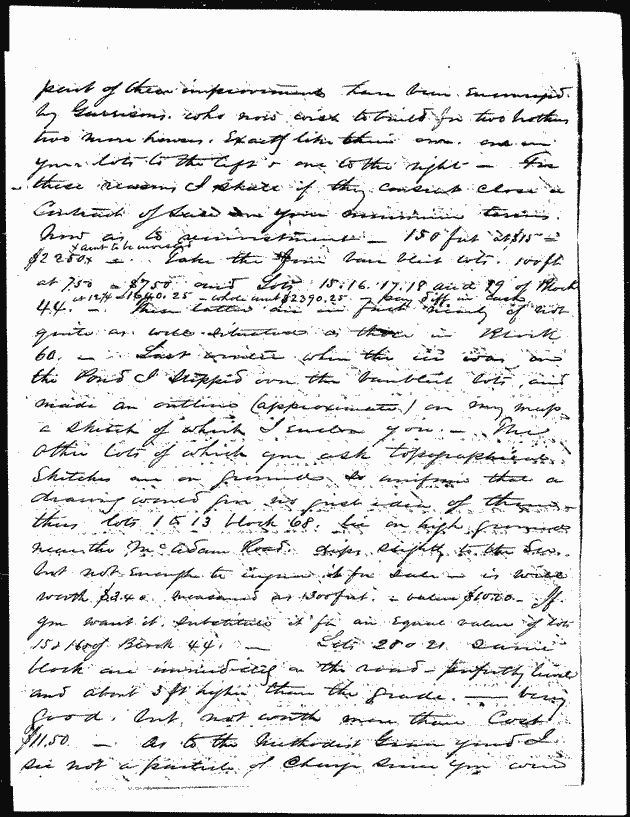 part of their improvements have been encouraged
by Garrisons. who now wish to build for two brothers
two more houses. Exactly like their own. one on
your lots to the left & one to the right — For
these reasons I shall if they consent close a
Contract of Sale on your minimum terms.
Now as to reinvestment — 150 feet at $15 =
x amt to be invested
$2250x — Take the Van lots. 100 ft
at 7.50 = $750 and Lots 15.16.17.18 and 19 of Block
at 12¼ = 1640.25 — whole amt $2390.25 — pay diff in Cash
44. — These latter are in fact nearly if not
quite as well situated as those in Block
60. — Last winter when the ice was on
the Pond I stepped over the lots and
made an outline (approximate) on my map
a sketch of which I enclose you. — The
other lots of which you ask topographical
Sketches are on grounds so uniform that a
drawing would give no just idea of them.
thus lots 1 to 13 block 68. lie on high ground
near the McAdam Road. slopes slightly to the
but not enough to injure it for Sale — is well
worth measured as 1300 feet. — value If
you want it. substitute it for an Equal value of lots
15 & 16 of Block 44. — Lots 20 & 21 same
block are immediately on the road — perfectly level
and about 3 ft higher than the grade — being
good. but not worth more than Cost
$11.50. — As to the Methodist yard I
see not a particle of Change since you were